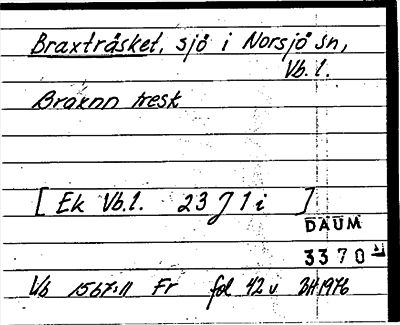 Braxträsket, sjö i Norsjö sn,
Vb. l.
Braxnn tresk
[Ek Vb.l. 23 J 1 i ]
DAUM
3370
Vb 1567:11 Fr fol 42 v BH 1976